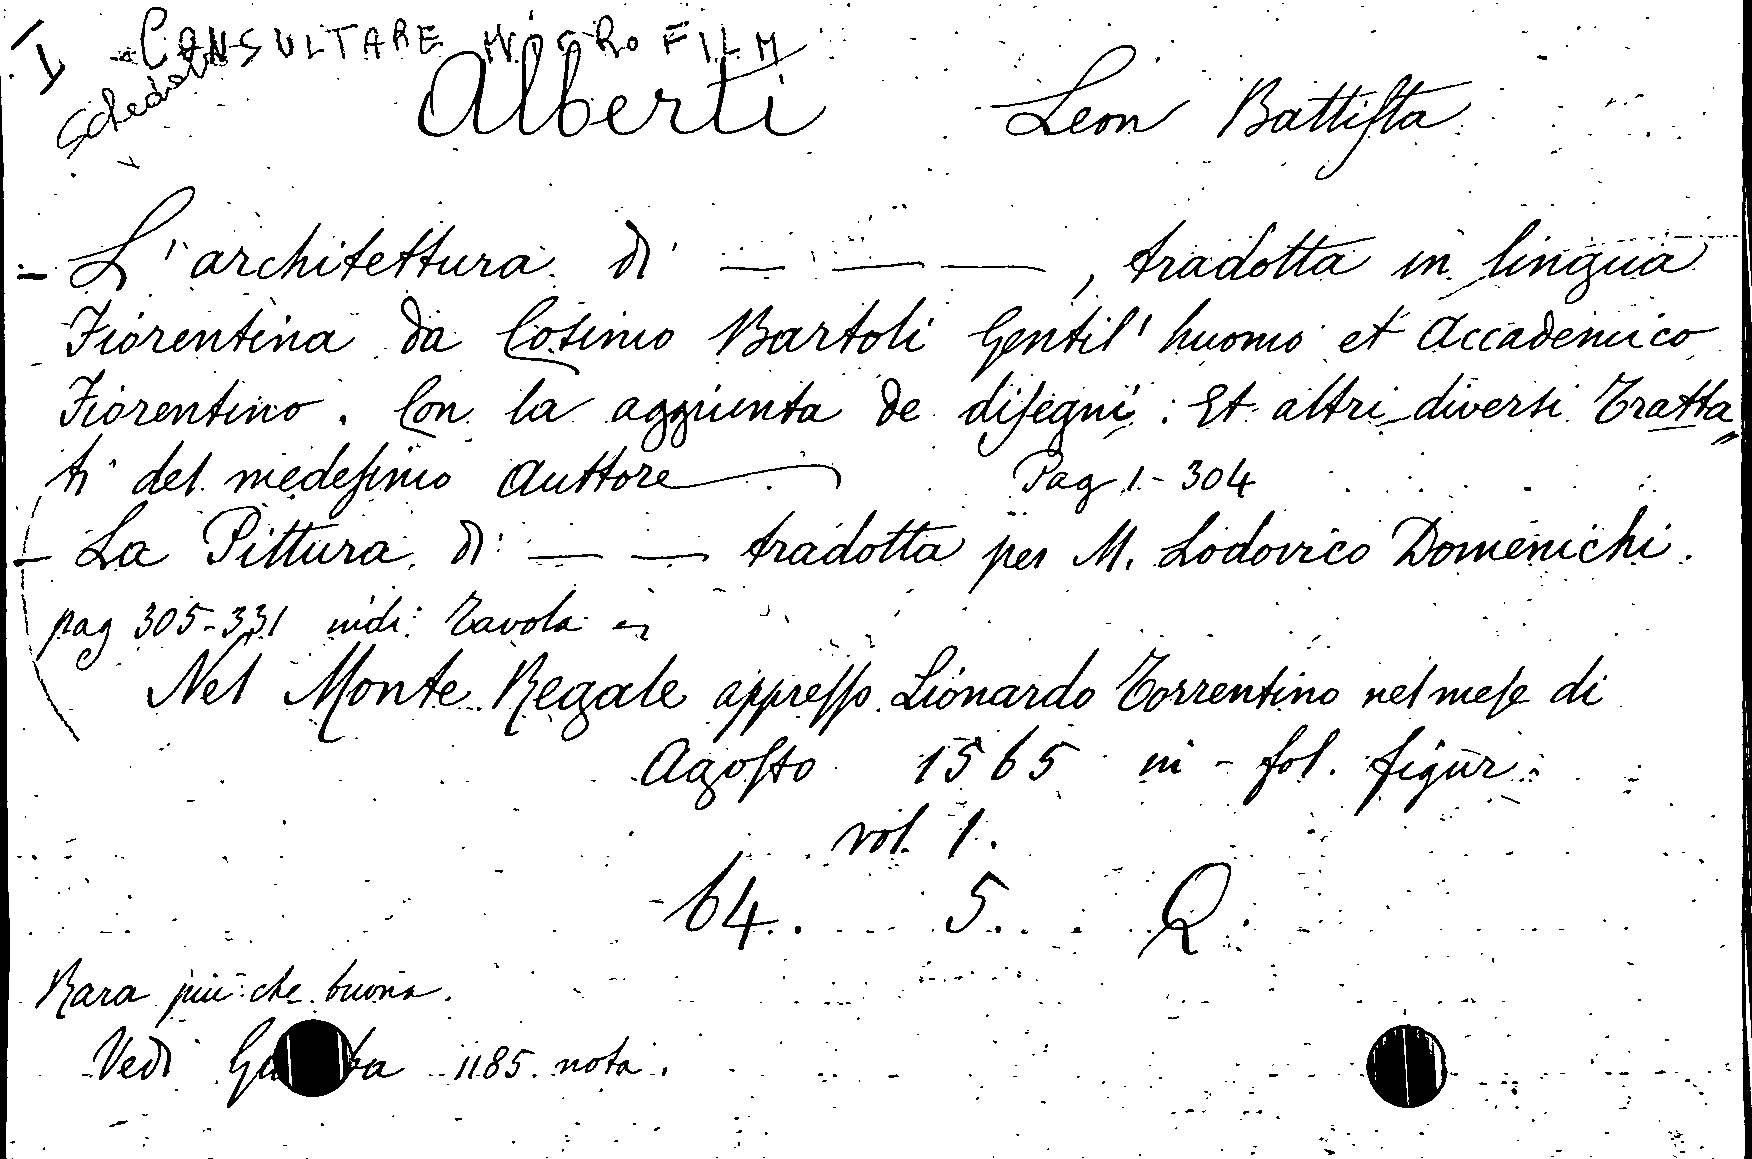 I CONSULTARE MICROFILM
Schedato
Alberti Leon Battiſta
- L'architettura di — — —, tradotta in lingua
Fiorentina da Cosimo Bartoli Gentil'huomo et Accademico
Fiorentino. Con la aggiunta de diſegni: Et altri diversi Tratta„
ti del medeſimo Auttore — Pag 1-304
- La Pittura di — — tradotta per M. Lodovico Domenichi.
pag 305-331 indi: Tavola
Nel Monte Regale appreſſo Lionardo Torrentino nel meſe di
Agoſto 1565 in-fol. figur:
vol. 1.
64. 5. Q.
Rara più che buona.
Vedi 1185 nota.